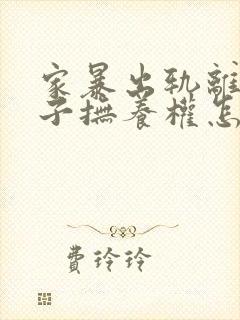 家暴出轨离
子抚养权怎
费玲玲